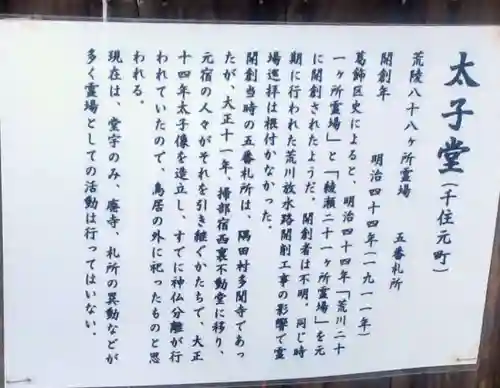 太子堂(千住元町)
荒陵八十八ヶ所霊場　五番札所
開創年　明治四十四年(一九一一年)
葛飾区史によると、明治四十四年「荒川二十
一ヶ所霊場」と「綾瀬二十一ヶ所霊場」を元
に開創されたようだ。開創者は不明。同じ時
期に行われた荒川放水路開削工事の影響で霊
場巡拝は根付かなかった。
開創当時の五番札所は、隅田村多聞寺であっ
たが、大正十一年、掃部宿西裏不動堂に移り、
元宿の人々がそれを引き継ぐかたちで、大正
十四年太子像を造立し、すでに神仏分離が行
われていたので、鳥居の外に祀ったものと思
われる。
現在は、堂宇のみ、廃寺、札所の異動などが
多く霊場としての活動は行ってはいない。